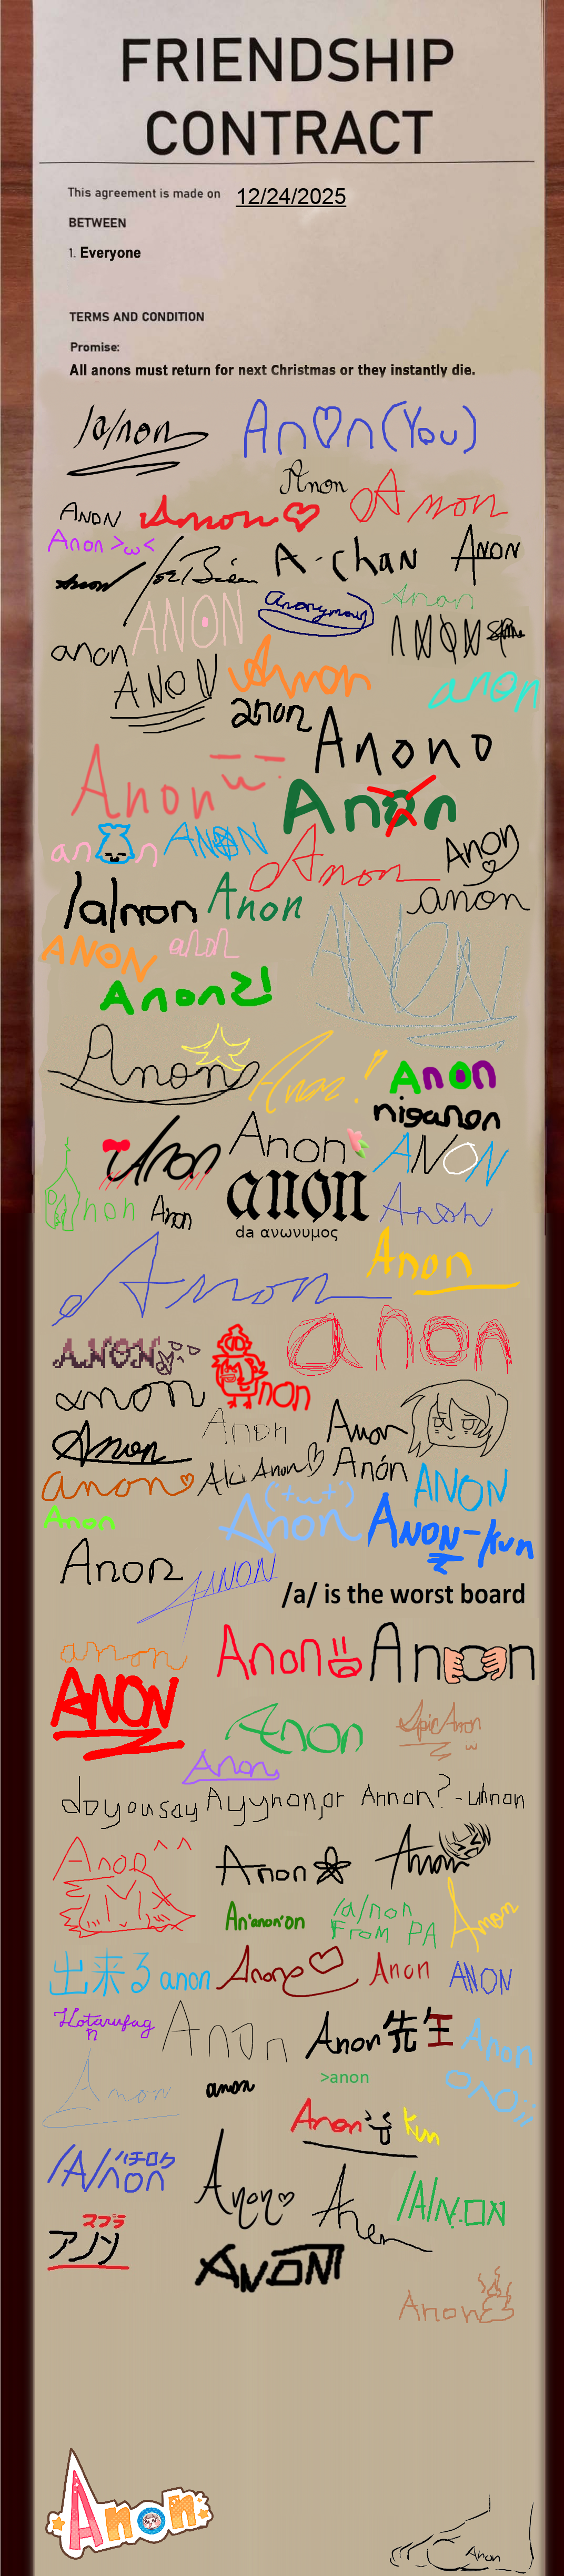 FRIENDSHIP
CONTRACT
This agreement is made on 12/24/2025
BETWEEN
1. Everyone
TERMS AND CONDITION
Promise:
All anons must return for next Christmas or they instantly die.
/a/non An♡n (You)
Anon
Anon Anon♡ Anon
Anon >ω<
Anon Joe Biden A-chan Anon
ANON Anonymous Anon
anon ANON
ANON Anon anon
anon Anono
Anon Anon
an n ANON Anon Anon
/a/non Anon anon
ANON anon ANON
Anon2!
Anon Anon!! Anon
niganon
Anon Anon ANON
Anon Anon anon Anon
da ανωνυμος
Anon Anon
ANON non anon
anon Anon Anon
Anon
anon♡ Aki Anon♡ Anón ANON
Anon Anon ('+ω+') ANON-kun
Anon ANON
/a/ is the worst board
anon Anon An n
ANON
Anon EpicAnon
Anon
do you say Ayynon, or Annon? - Uhnon
Anon^^ Anon Anon
An'anon'on /a/non From PA Anon
出来る anon Anon♡ Anon ANON
Hotarufag Anon Anon先生 Anon
Anon anon >anon
Anon kun
/A/non ハチロク Anon♡ Anon /A/NON
マプラ
アノン ANON
Anon
Anon
Anon